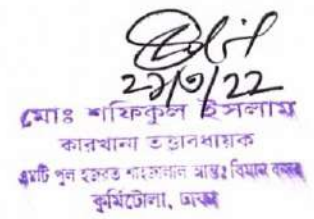 ২১/৩/২২
মোঃ শফিকুল ইসলাম
কারখানা তত্ত্বাবধায়ক
এমটি পুল হজরত শাহজালাল আন্তঃ বিমান বন্দর
কুর্মিটোলা, ঢাকা